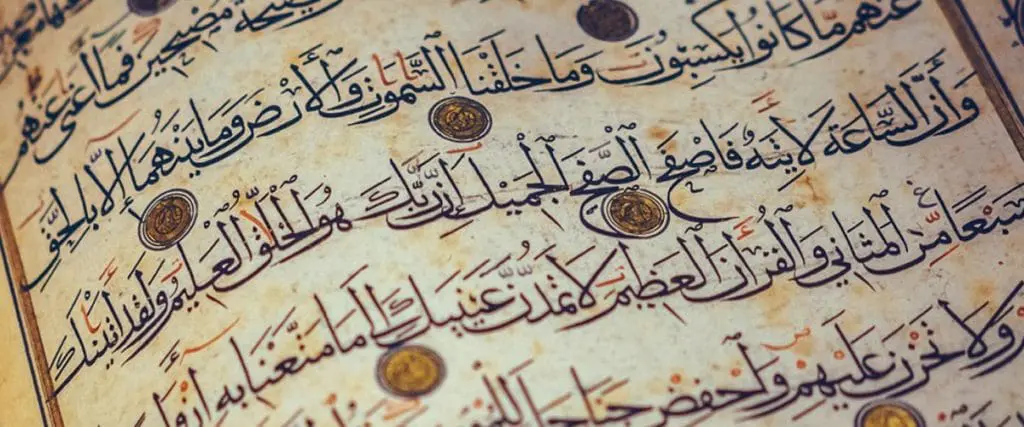 الصيحة مصبحين فما اغنى عنهم
عنهم مّا كانوا يكسبون وما خلقنا السّموت والأرض وما بينهما إلّا بالحقّ
وأنّ السّاعة لأتية فاصفح الصّفح الجميل إنّ ربّك هو الخلّق العليم ولقد اتينك
سبعا مّن المثاني والقرأن العظيم لا تمدّنّ عينيك الى ما متّعنا به أزوا
ولا تحزن عليهم واخفض جناحك للمو